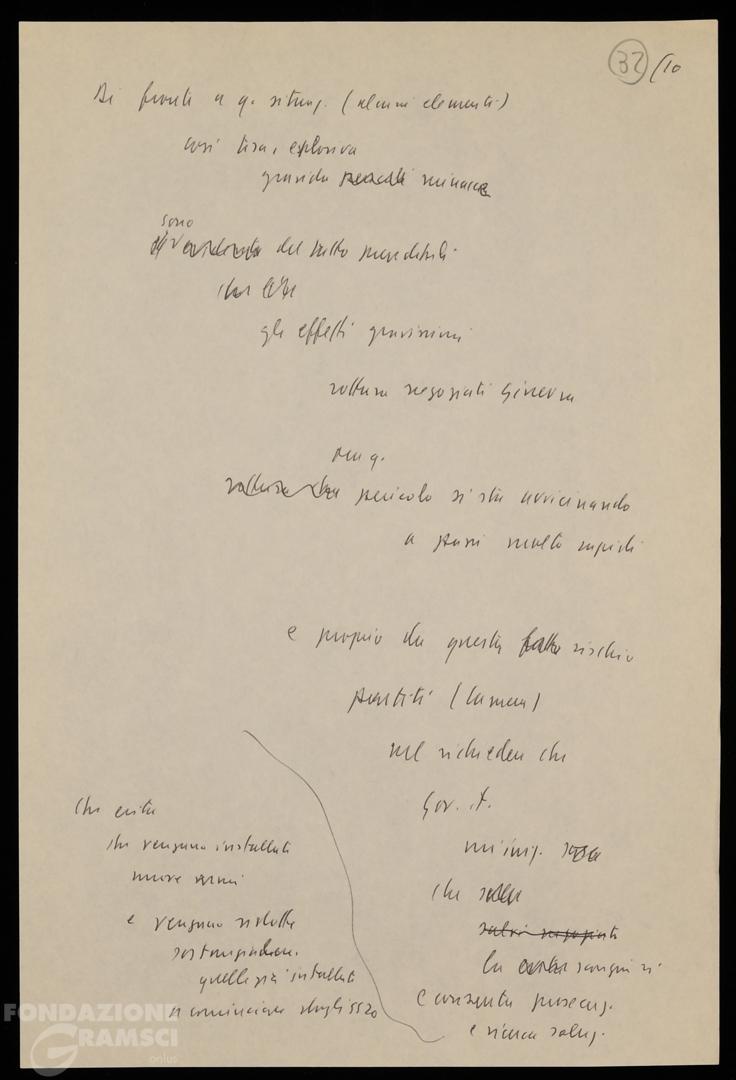 32/10
Di fronte a q. situaz. (alcuni elementi)
così tesa, esplosiva
gravida minacce
sono
del tutto prevedibili
gli effetti gravissimi
rottura negoziati Ginevra
Ma q.
pericolo si sta avvicinando
a passi molto rapidi
e proprio da questo rischio
partiti (Camera)
nel richiedere che
Gov. it.
un'iniz.
che
salvi negoziati
la
e consenta prosecuz.
e ricerca soluz.
che eviti
che vengano installati
nuove armi
e vengano ridotte
quelle già installati
a cominciare dagli SS20
FONDAZIONE
GRAMSCI
onlus